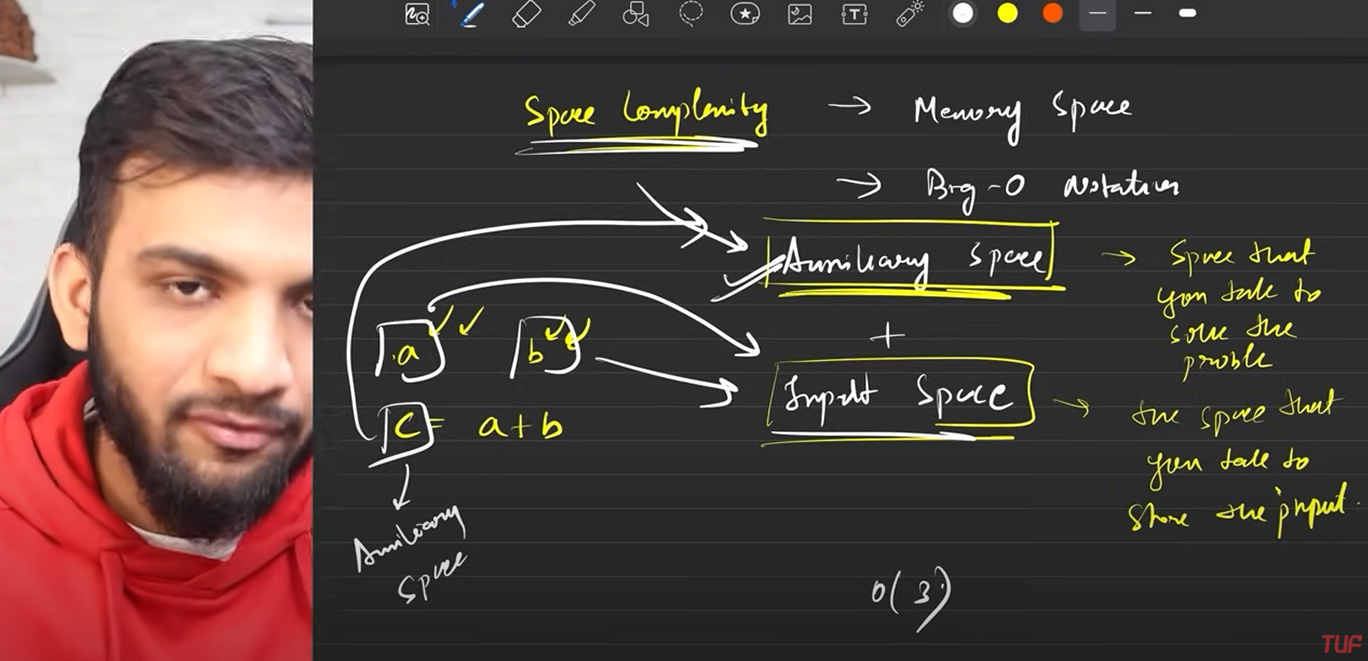 Space Complexity → Memory Space
→ Big-O Notation
Auxiliary Space → Space that
you take to
solve the
problem
+
a b
Input Space → the space that
you take to
store the input.
c = a+b
Auxiliary
Space
O(3)
TUF